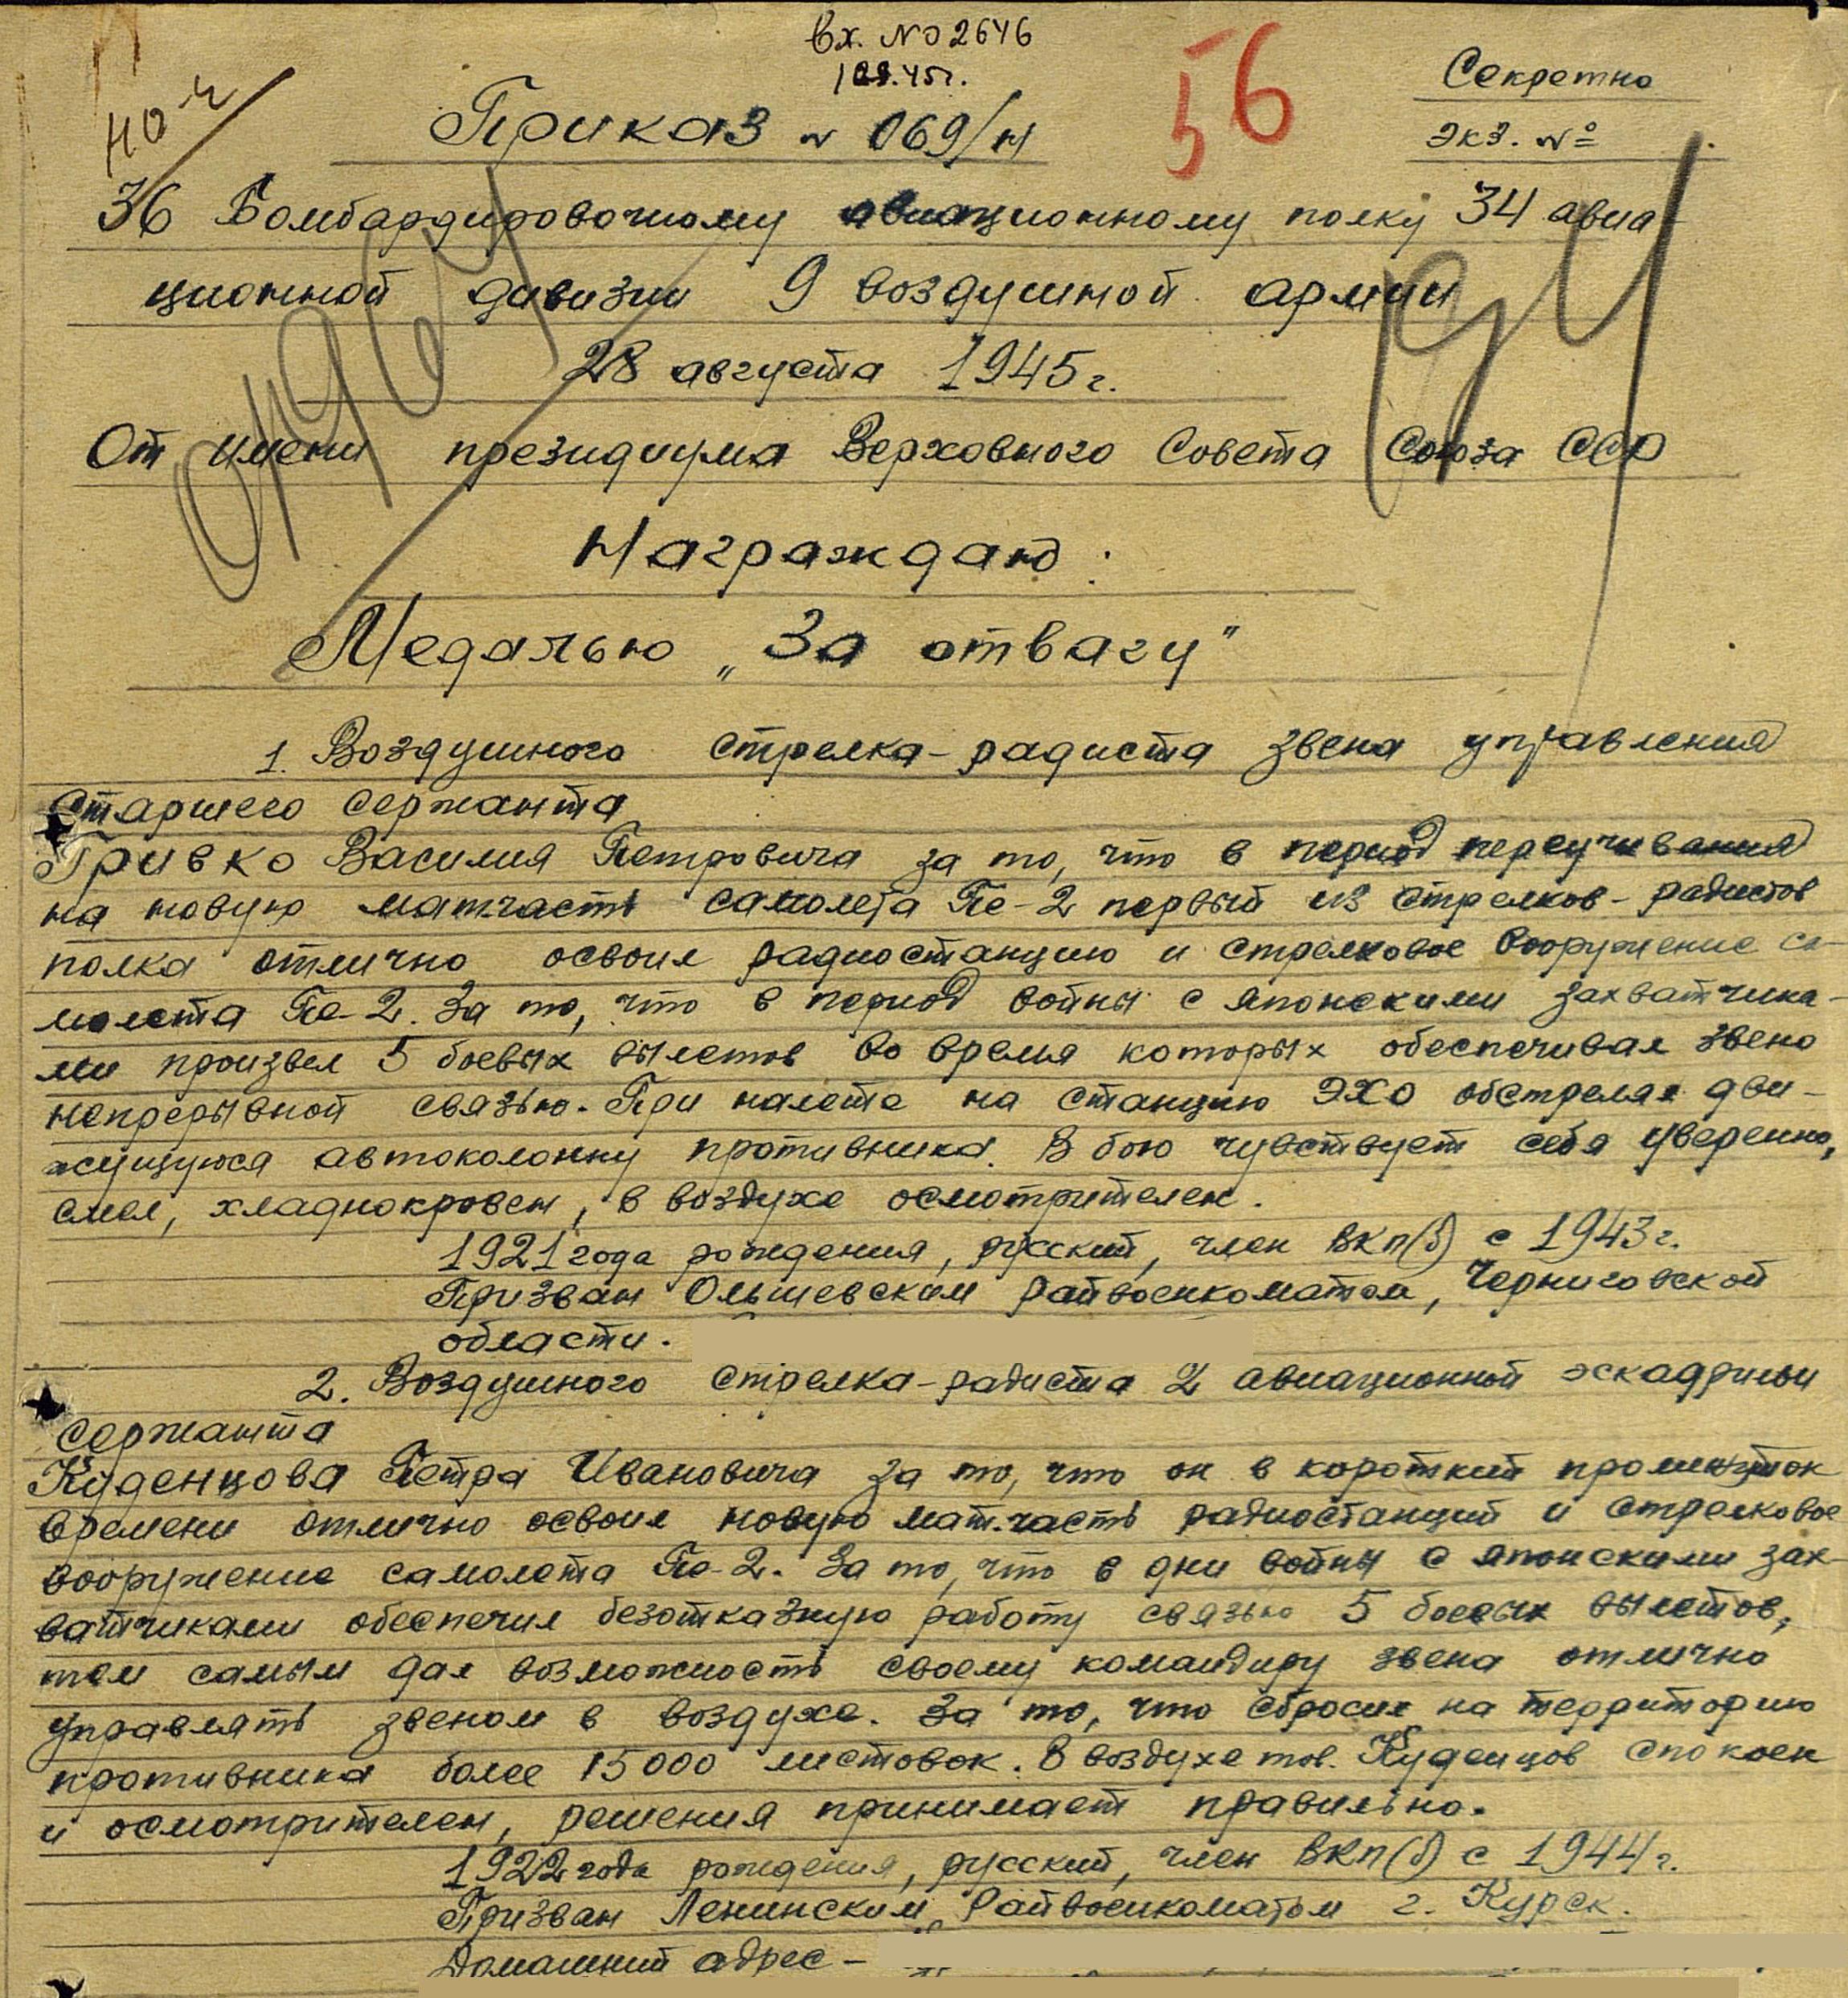 Вх. № 2646
1.09.45г.
56
Секретно
Экз. №
Приказ № 069/н
36 Бомбардировочному авиационному полку 34 авиа
ционной дивизии 9 воздушной армии
28 августа 1945 г.
От имени президиума Верховного Совета Союза ССР
Награждаю:
Медалью „За отвагу"
1. Воздушного стрелка-радиста звена управления
старшего сержанта
Гривко Василия Петровича за то, что в период переучивания
на новую матчасть самолета Пе-2 первый из стрелков-радистов
полка отлично освоил радиостанцию и стрелковое вооружение са-
молета Пе-2. За то, что в период войны с японскими захватчика-
ми произвел 5 боевых вылетов во время которых обеспечивал звено
непрерывной связью. При налете на станцию ЭХО обстрелял дви-
жущуюся автоколонну противника. В бою чувствует себя уверенно,
смел, хладнокровен, в воздухе осмотрителен.
1921 года рождения, русский, член ВКП(б) с 1943 г.
Призван Ольшевским Райвоенкоматом, Черниговской
области.
2. Воздушного стрелка-радиста 2 авиационной эскадрильи
сержанта
Куденцова Петра Ивановича за то, что он в короткий промежуток
времени отлично освоил новую мат.часть радиостанций и стрелковое
вооружение самолета Пе-2. За то, что в дни войны с японскими зах-
ватчиками обеспечил безотказную работу связью 5 боевых вылетов,
тем самым дал возможность своему командиру звена отлично
управлять звеном в воздухе. За то, что сбросил на территорию
противника более 15000 листовок. В воздухе тов. Куденцов спокоен
и осмотрителен, решения принимает правильно.
1922 года рождения, русский, член ВКП(б) с 1944 г.
Призван Ленинским Райвоенкоматом г. Курск.
Домашний адрес -